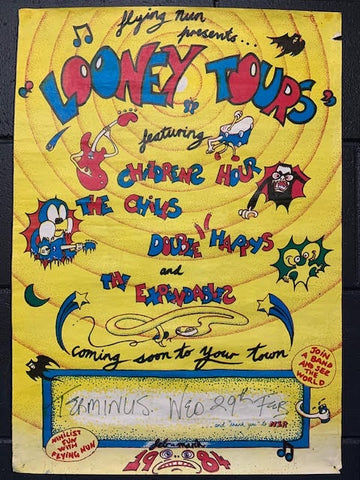 flying nun
presents...
LOONEY TOURS
featuring
CHILDRENS HOUR
THE CHILLS
DOUBLE HAPPYS
and
THE EXPENDABLES
coming soon to your town
JOIN
A BAND
AND SEE
THE
WORLD
TERMINUS. WED 29th FEB
and thank you to
NIHILIST
FUN WITH
FLYING NUN
feb - march
1984